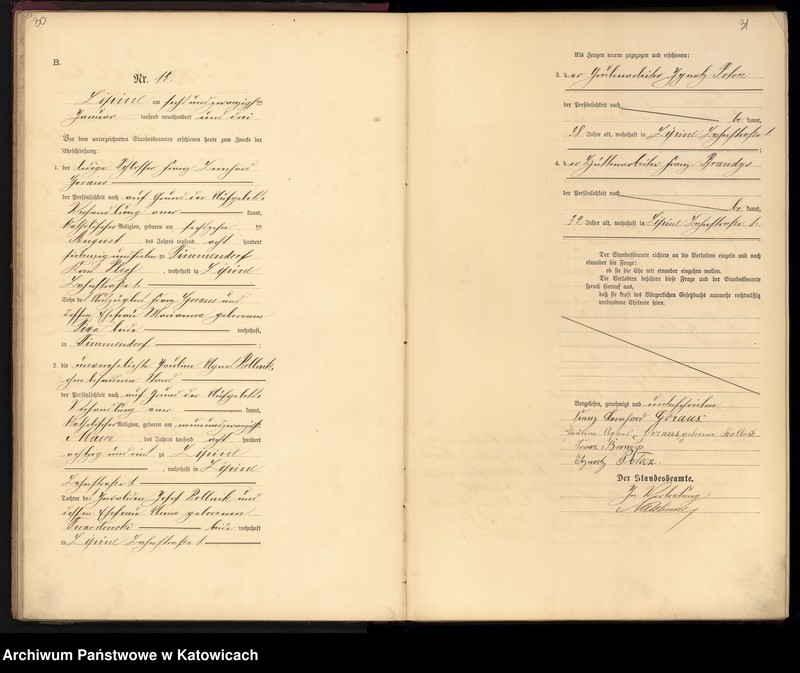 30
B.
Nr. 15.
Lipine am sechsundzwanzigsten
Januar tausend neunhundert und drei
Vor dem unterzeichneten Standesbeamten erschienen heute zum Zwecke der
Eheschließung:
1. der ledige Schlosser Franz Bernhard
Goraus
der Persönlichkeit nach auf Grund der Aufgebots-
Verhandlung aner kannt,
katholischer Religion, geboren am sechzehn ten
August des Jahres tausend acht hundert
siebenzig und sieben zu Timmendorf
Kreis Pless, wohnhaft in Lipine
Bahnstraße 1
Sohn des Franz Goraus und
dessen Ehefrau Marianna geborenen
beide wohnhaft,
in Timmendorf;
2. die unverehelichte Pauline Agnes Rollnik,
ohne besonderen Stand
der Persönlichkeit nach auf Grund der Aufgebots-
Verhandlung aner kannt,
katholischer Religion, geboren am neunundzwanzigsten
März des Jahres tausend acht hundert
achtzig und ein zu Lipine
, wohnhaft in Lipine
Bahnstraße 1
Tochter des Invaliden Josef Rollnik und
dessen Ehefrau Anna geborenen
Twardowski beide wohnhaft
in Lipine Bahnstraße 1
31
Als Zeugen waren zugezogen und erschienen:
3. der Grubenarbeiter Ignatz Potaz
der Persönlichkeit nach
be kannt,
38 Jahre alt, wohnhaft in Lipine Bahnstraße 1
;
4. der Hüttenarbeiter Franz Brandys
der Persönlichkeit nach
be kannt,
32 Jahre alt, wohnhaft in Lipine Bahnstraße 1.
Der Standesbeamte richtete an die Verlobten einzeln und nach
einander die Frage:
ob sie die Ehe mit einander eingehen wollen.
Die Verlobten bejahten diese Frage und der Standesbeamte
sprach hierauf aus,
daß sie kraft des Bürgerlichen Gesetzbuchs nunmehr rechtmäßig
verbundene Eheleute seien.
Vorgelesen, genehmigt und unterschrieben
Franz Bernhard Goraus
Pauline Agnes Goraus geborene Rollnik
Franz Brandys
Ignatz Potaz.
Der Standesbeamte.
In Vertretung
Archiwum Państwowe w Katowicach